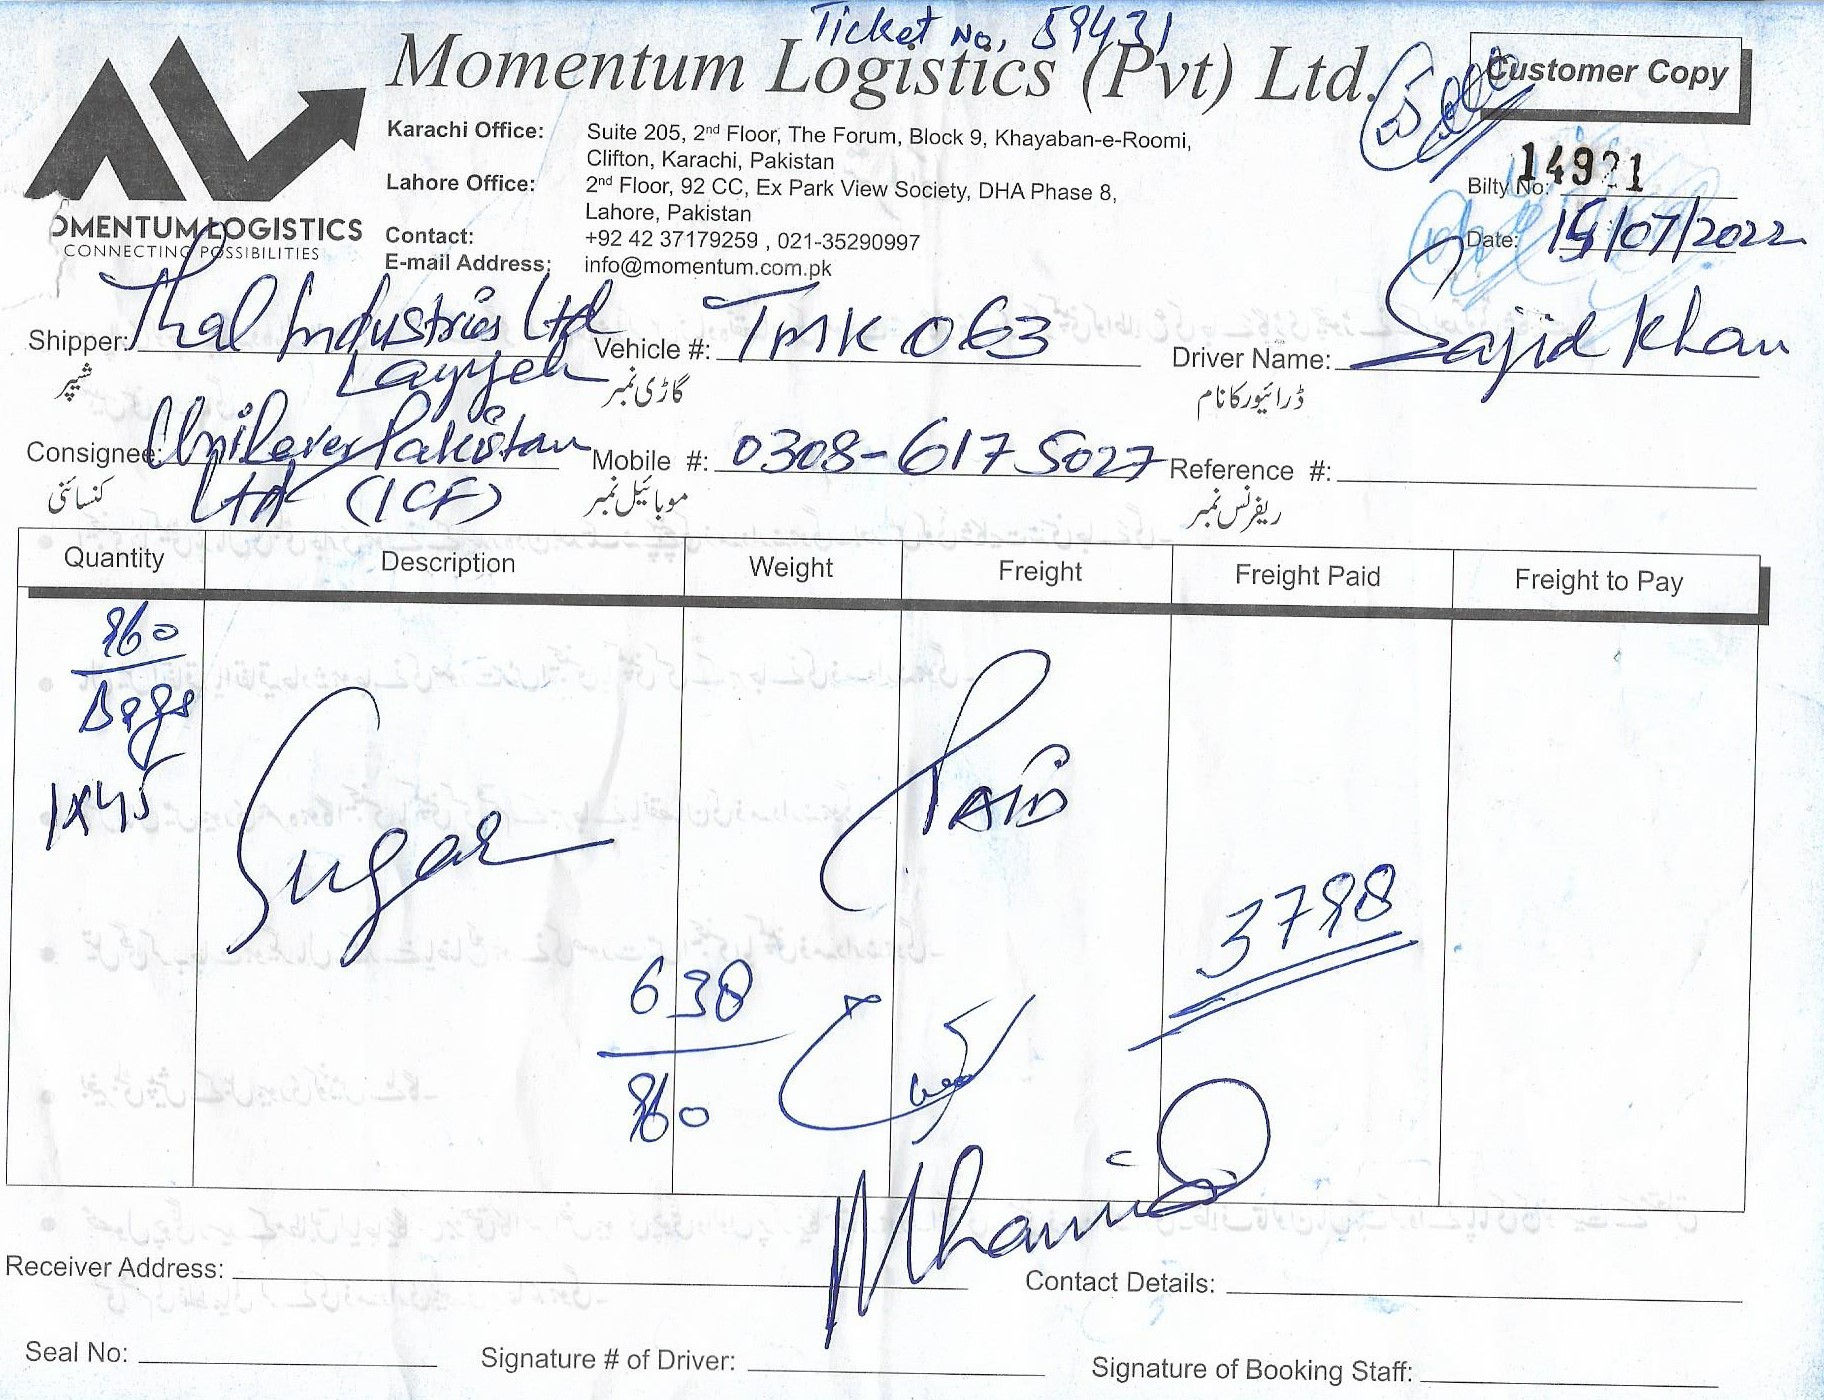 Ticket No, 59431
Momentum Logistics (Pvt) Ltd.
Customer Copy
Karachi Office: Suite 205, 2nd Floor, The Forum, Block 9, Khayaban-e-Roomi,
Clifton, Karachi, Pakistan
Lahore Office: 2nd Floor, 92 CC, Ex Park View Society, DHA Phase 8,
Lahore, Pakistan
Contact: +92 42 37179259 , 021-35290997
E-mail Address: info@momentum.com.pk
OMENTUM LOGISTICS
CONNECTING POSSIBILITIES
Bilty No: 14921
Date: 15/07/2022
Shipper: Thal Industries Ltd
Layyah
شپر
Vehicle #: TMK 063
گاڑی نمبر
Driver Name: Sajid Khan
ڈرائیور کا نام
Consignee: Unilever Pakistan
Ltd (ICF)
کنسائنی
Mobile #: 0308-617 5027
موبائیل نمبر
Reference #:
ریفرنس نمبر
Quantity Description Weight Freight Freight Paid Freight to Pay
960
Bags
1x45
Sugar
PAID
3798
638
960
Receiver Address:
Contact Details:
Seal No:
Signature # of Driver:
Signature of Booking Staff: